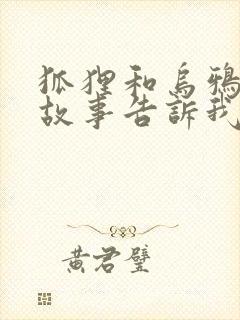 狐狸和烏鴉
故事告訴我
黃君璧